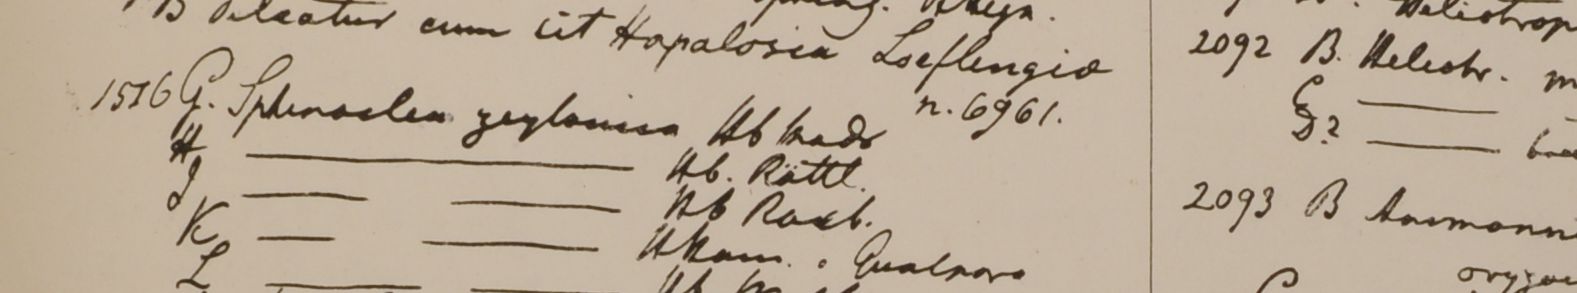 B Deleatur cum sit Hapalosia Loeflengiæ
n. 6961.
1516 G. Sphenoclea zeylanica Hb Madr
H ——— Hb. Röttl.
I —— —— Hb Roxb.
K —— —— HHam. Gualpara
L —— —— Hb
Heliotrop
2092 B. Heliotr. m
C ———
D? ———
2093 B Ammanni
oryzae
C